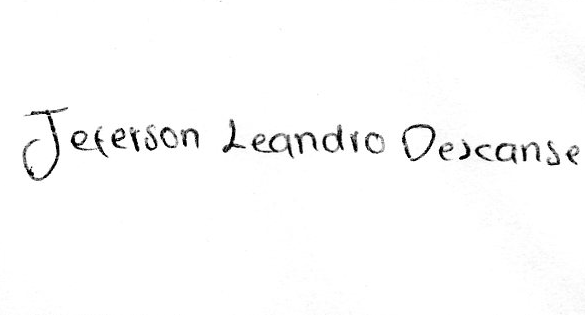 Jeferson Leandro Descanse